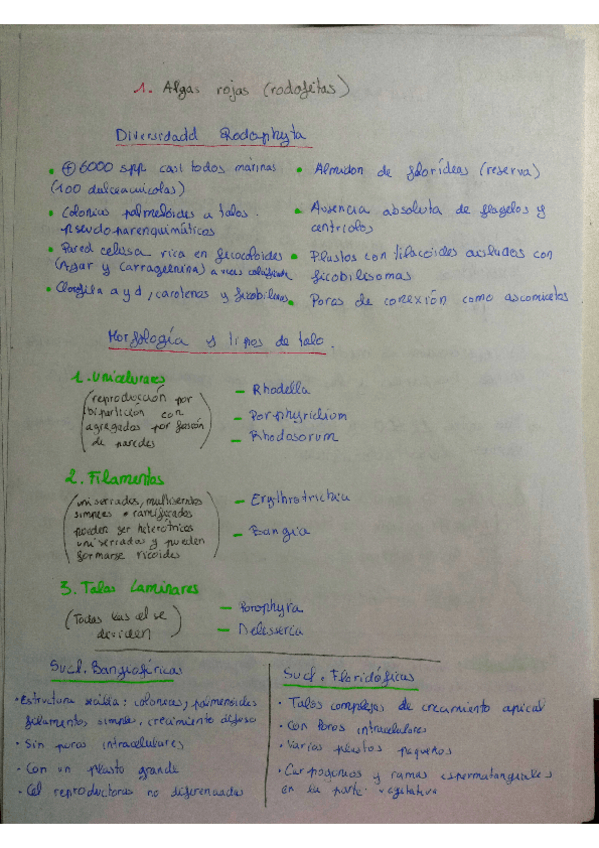 1. Algas rojas (rodofitas)
Diversidadd Rodophyta
• + 6000 spp casi todos marinas
(100 dulceacuicolas)
• Colonias palmeloides a talos
pseudoparenquimáticos
• Pared celulosa rica en ficocoloides
(Agar y Carragenina) a veces
• Clorofila a y d, carotenas y ficobilinas
• Almidon de florídeas (reserva)
• Ausencia absoluta de flagelos y
centriolos
• Plastos con tilacoides aislados con
ficobilisomas
• Poros de conexión como ascomicetos
Morfología y tipos de talo.
1. Unicelulares
(reproducción por
bipartición con
agregados por fusión
de paredes)
– Rhodella
– Porphyridium
– Rhodosorum
2. Filamentos
(uniseriados, multiseriados
simples o ramificados
pueden ser heterótricos
uniseriados y pueden
formarse rizoides)
– Erythrotrichia
– Bangia
3. Talos Laminares
(Todas las cel se
dividen)
– Porophyra
– Delesseria
Sucl. Bangiofícicas
• Estructura sencilla: colonias, palmenoides
filamentos, simple, crecimiento difuso
• Sin poros intracelulares
• Con un plasto grande
• Cel reproductoras no diferenciadas
Sucl. Floridofícicas
• Talos complejos de crecimiento apical
• Con Poros intracelulares
• Varios plastos pequeños
• Carpogonios y ramas espermatangiales
en la parte vegetativa